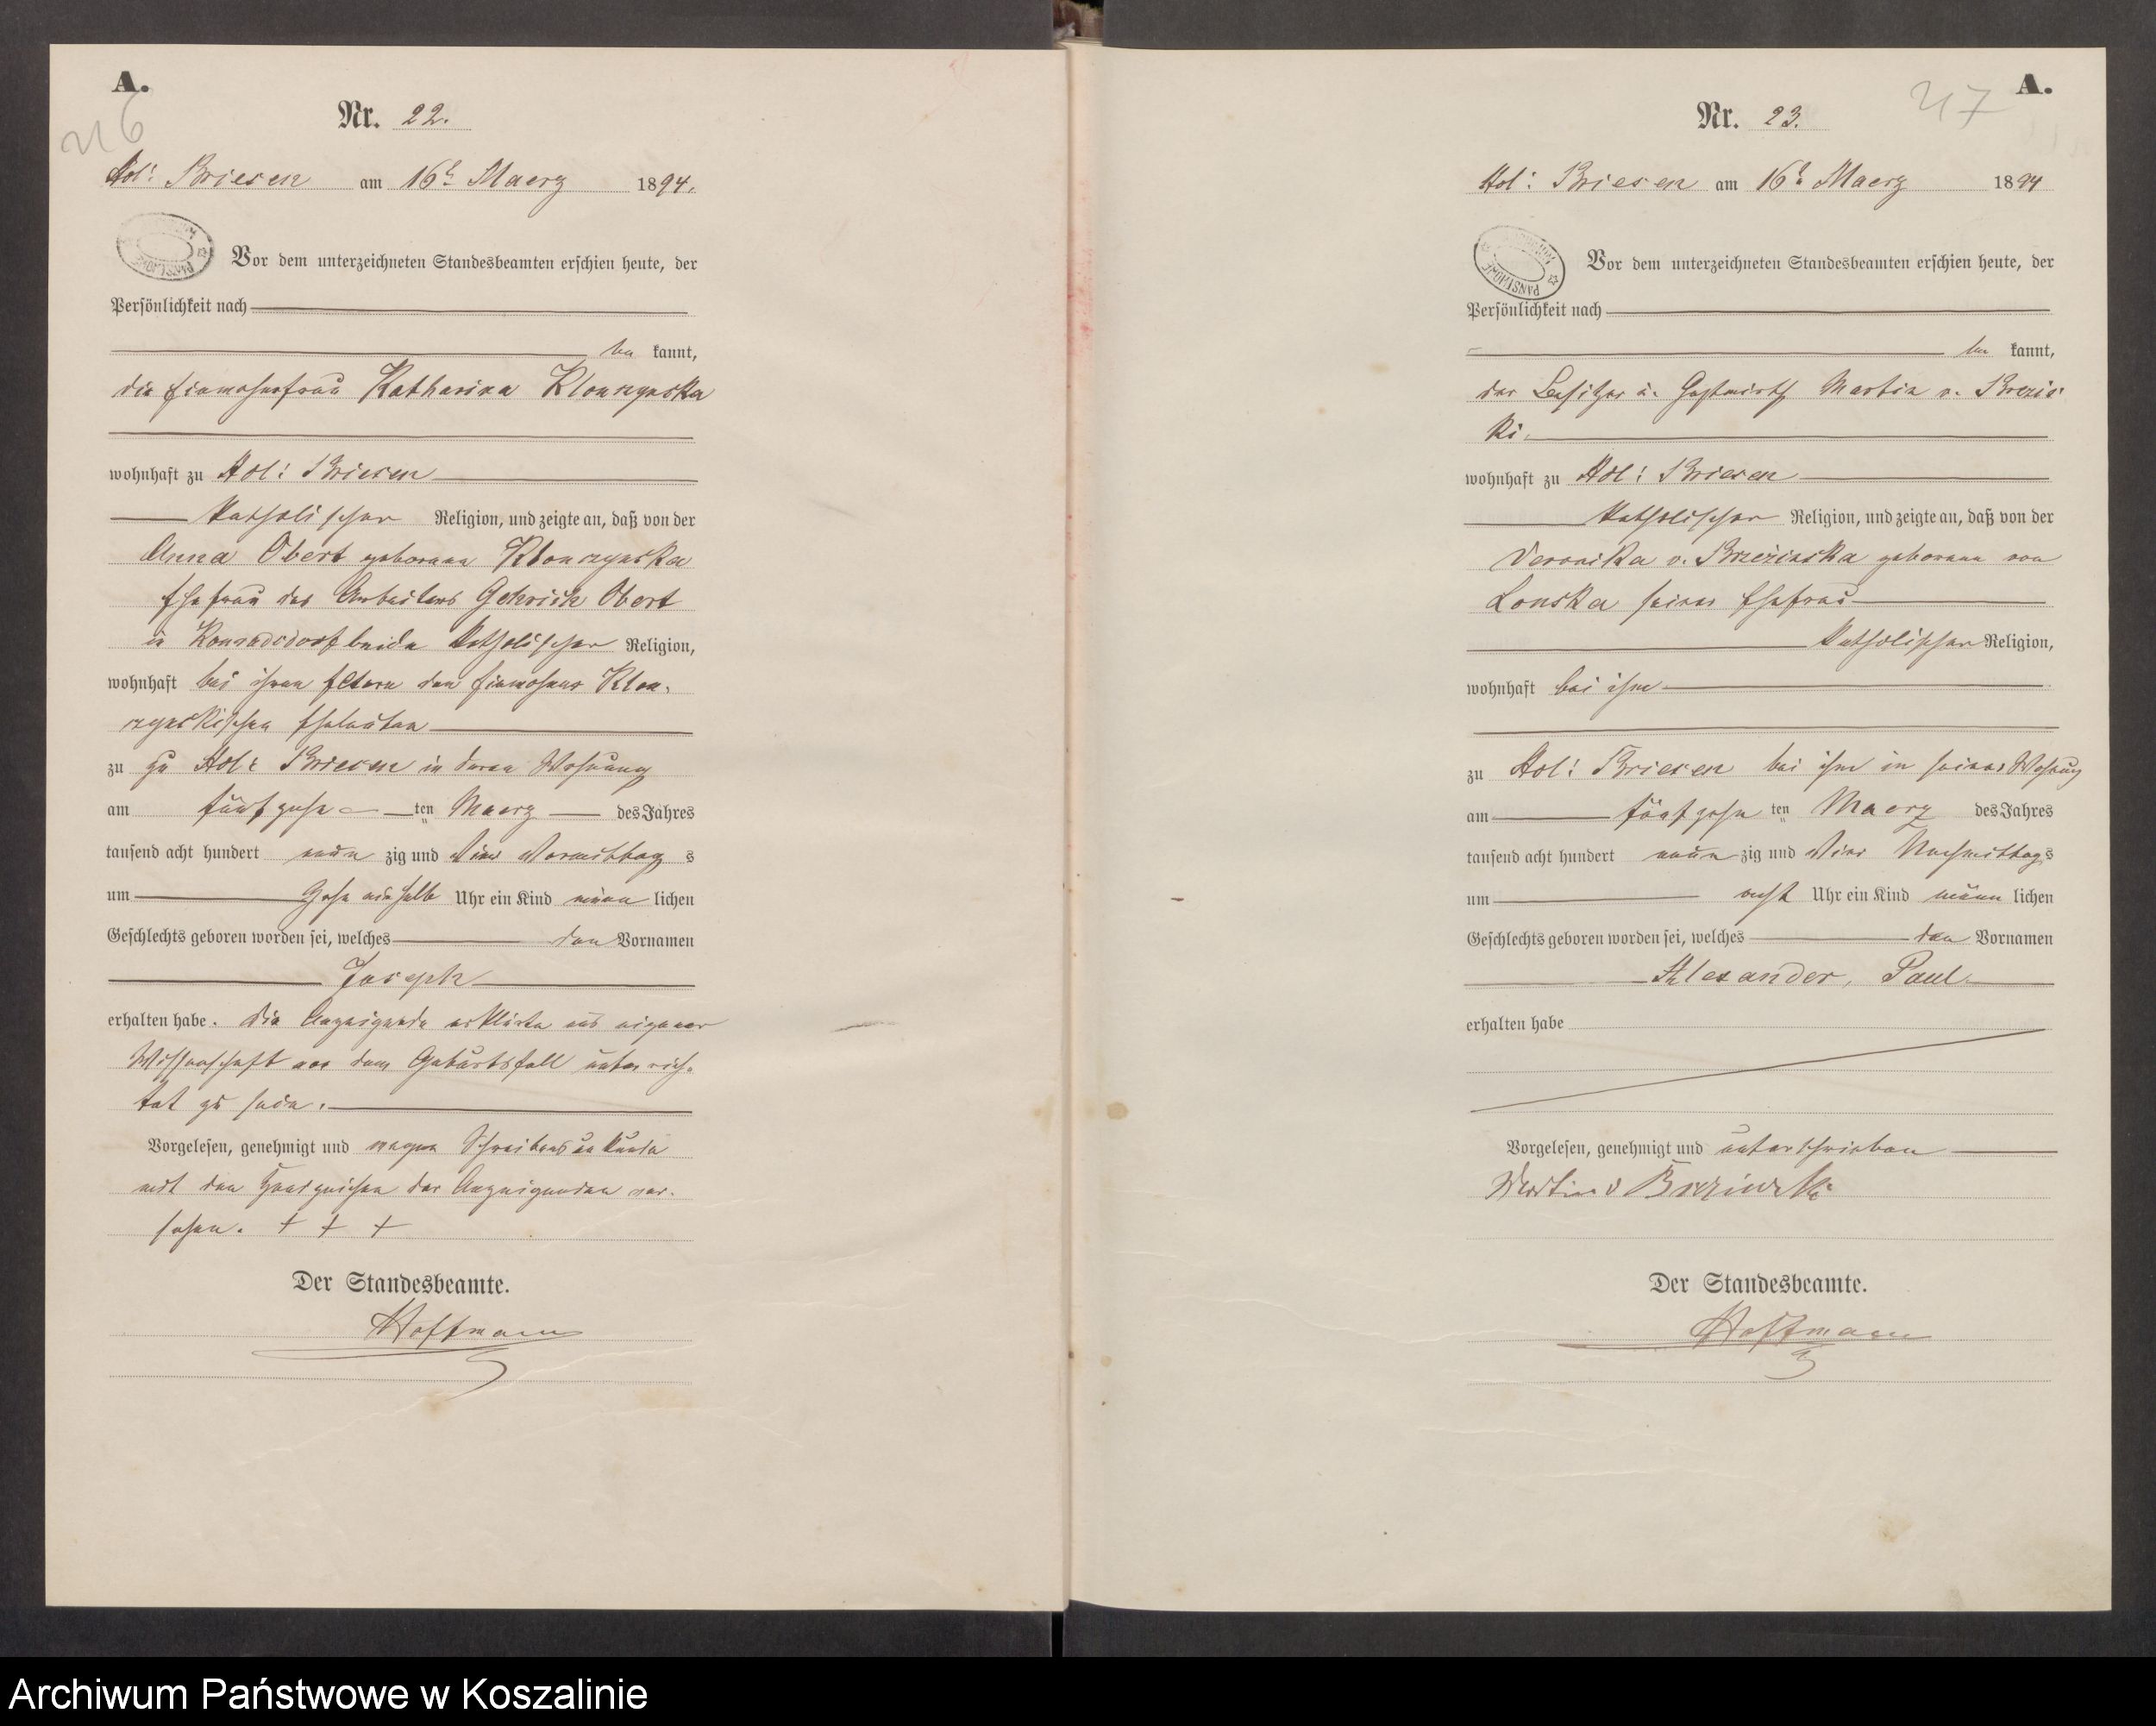 A.
216
Nr. 22.
Adl: Briesen am 16t Maerz 1894.
Vor dem unterzeichneten Standesbeamten erschien heute, der
Persönlichkeit nach
be kannt,
die Einwohnerfrau Katharina
wohnhaft zu Adl: Briesen
katholischer Religion, und zeigte an, daß von der
Anna Obert geborene
Ehefrau des Arbeiters Obert
in beide katholischer Religion,
wohnhaft bei ihren Eltern den Einwohner
Eheleuten
zu zu Adl: Briesen in deren Wohnung
am fünfzehn ten Maerz des Jahres
tausend acht hundert neun zig und vier Vormittag s
um Uhr ein Kind männ lichen
Geschlechts geboren worden sei, welches den Vornamen
Joseph
erhalten habe. Die Anzeigende erklärte aus eigener
Wissenschaft von dem Geburtsfall unterrich-
tet zu sein.
Vorgelesen, genehmigt und wegen Schreibensunkunde
mit den Handzeichen der Anzeigenden ver-
sehen. + + +
Der Standesbeamte.
Hoffmann
A.
217
Nr. 23.
Adl: Briesen am 16t Maerz 1894
Vor dem unterzeichneten Standesbeamten erschien heute, der
Persönlichkeit nach
be kannt,
der Besitzer u. Gastwirth Martin v.
ki.
wohnhaft zu Adl: Briesen
katholischer Religion, und zeigte an, daß von der
Veronika v. Brzezinska geborene von
Lonska seiner Ehefrau
katholischer Religion,
wohnhaft bei ihm
zu Adl: Briesen bei ihm in seiner Wohnung
am fünfzehn ten Maerz des Jahres
tausend acht hundert neun zig und vier Nachmittag s
um acht Uhr ein Kind männ lichen
Geschlechts geboren worden sei, welches den Vornamen
Alexander, Paul
erhalten habe
Vorgelesen, genehmigt und unterschrieben
Martin v
Der Standesbeamte.
Hoffmann
Archiwum Państwowe w Koszalinie